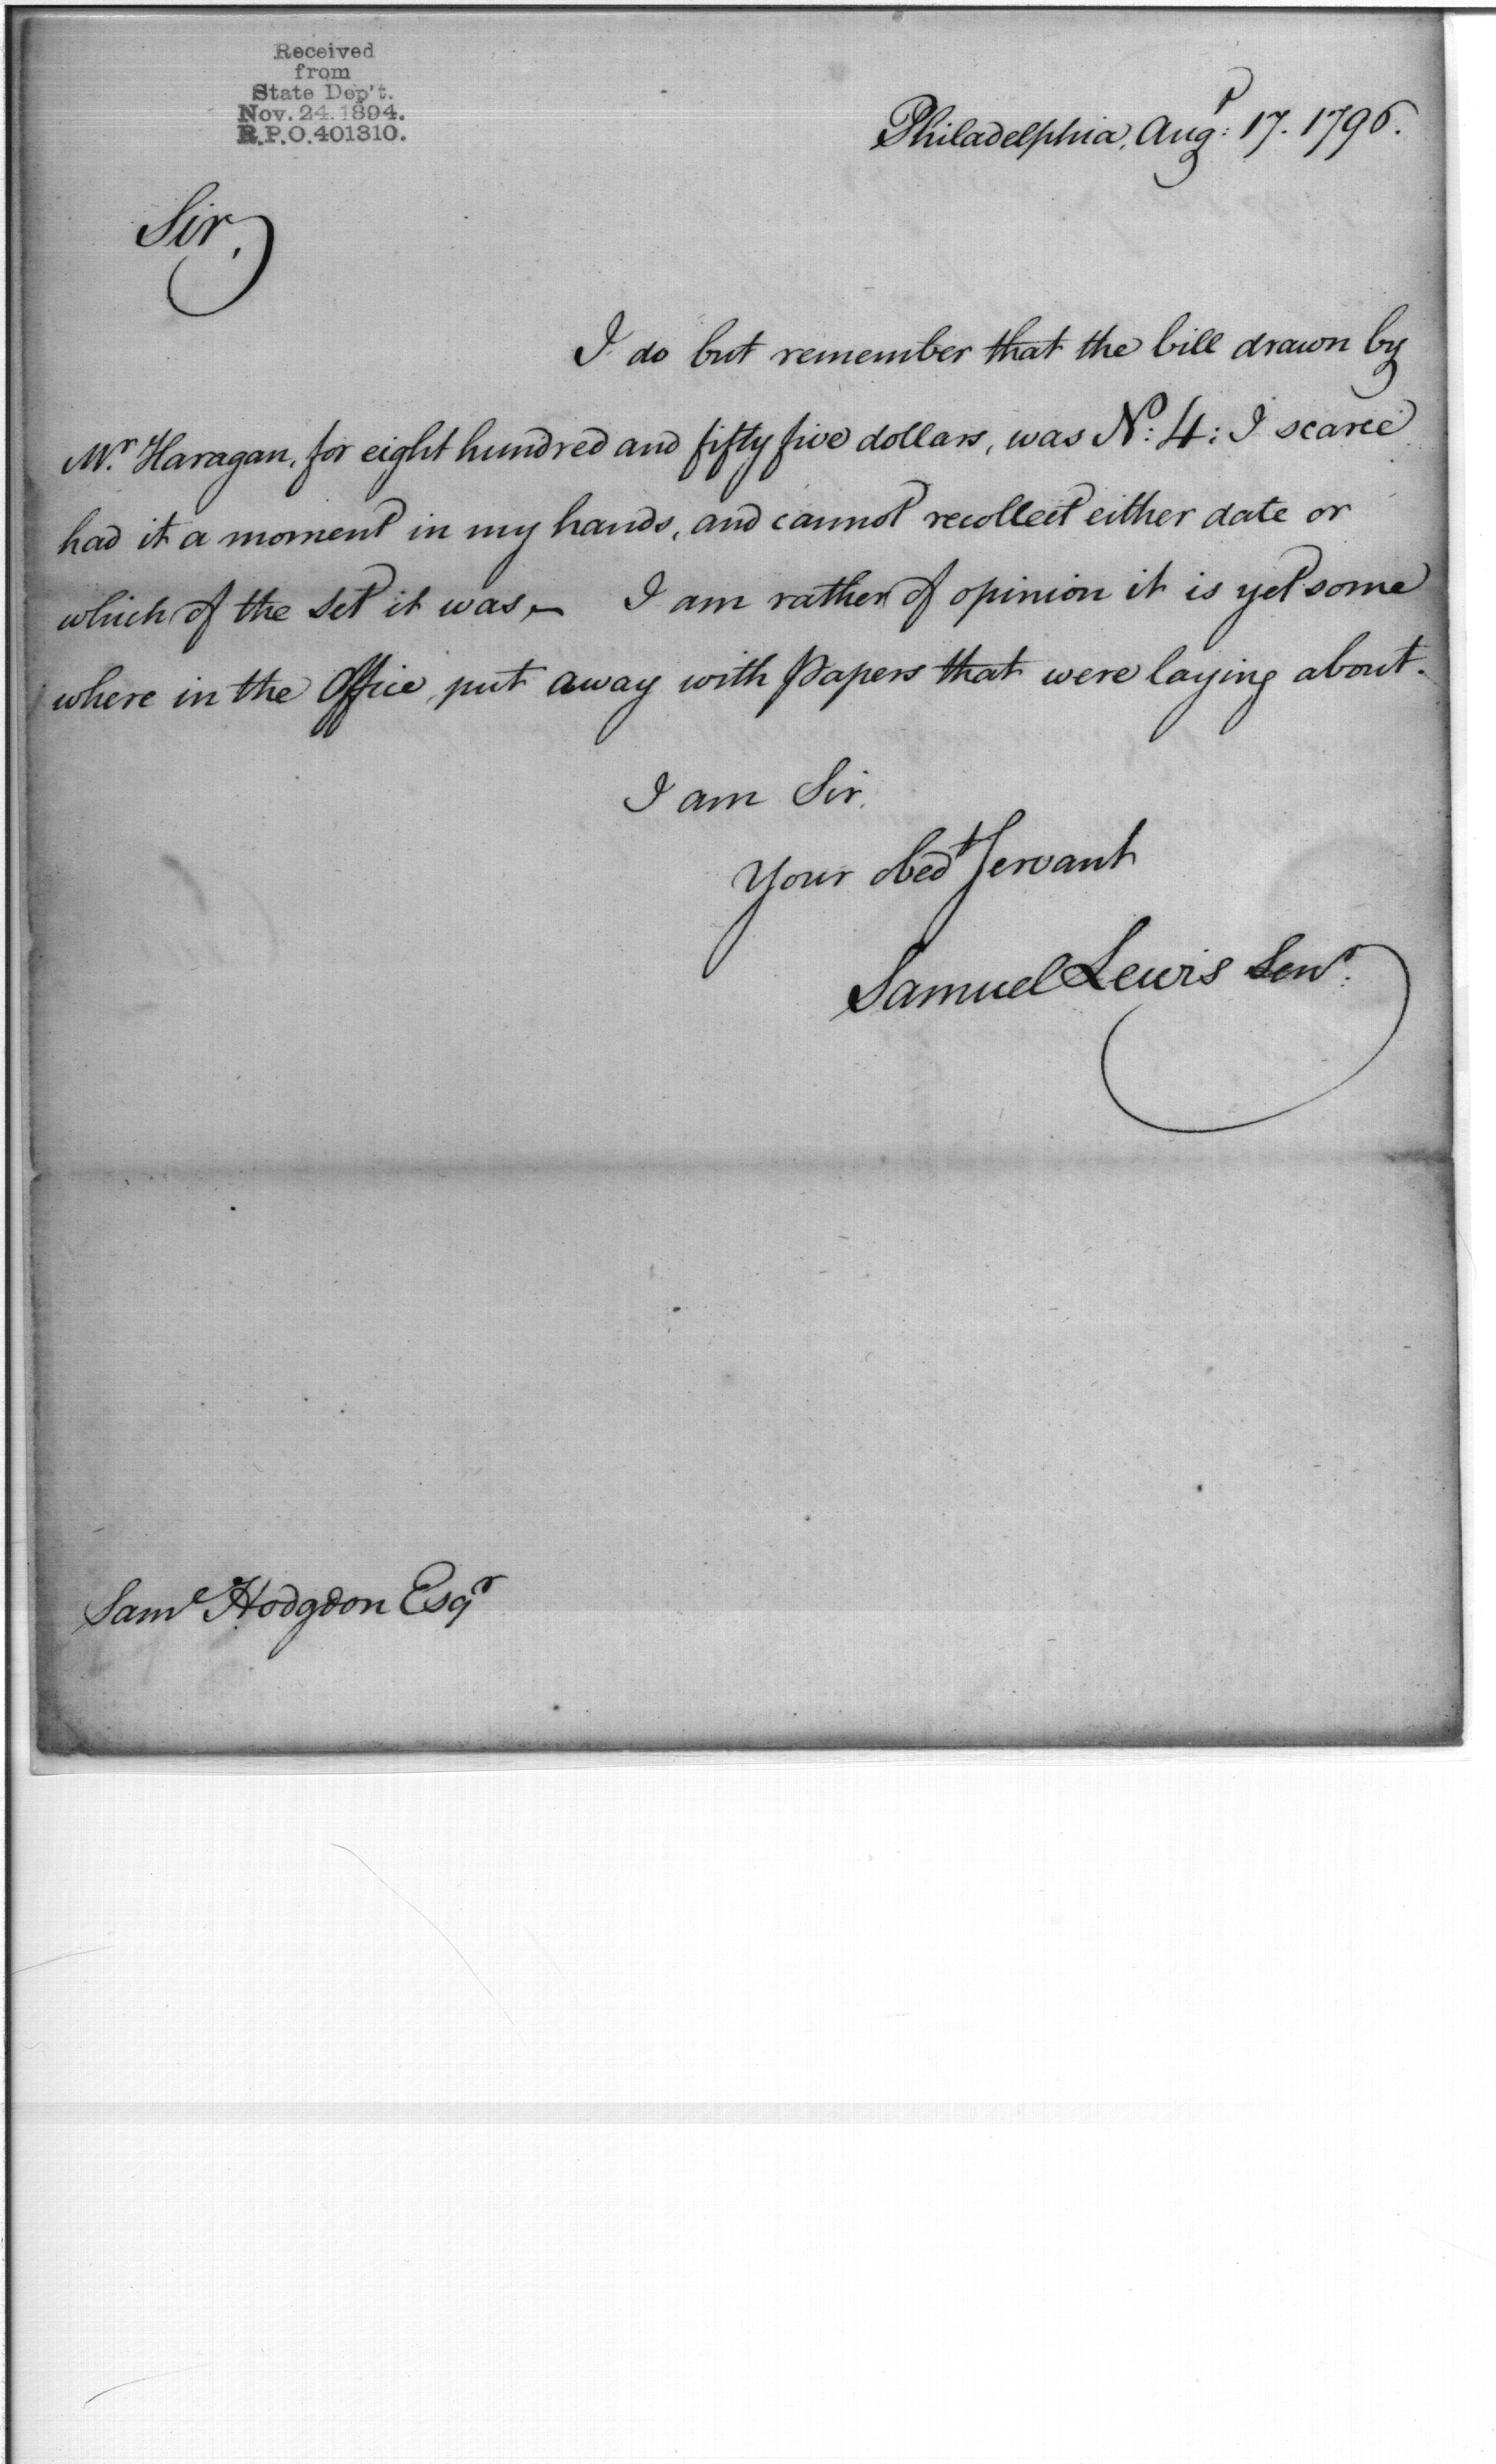 Received
from
State Dep't.
Nov. 24. 1894.
R.P.O. 401310.
Philadelphia, Augt: 17. 1796.
Sir,
I do but remember that the bill drawn by
Mr. Haragan, for eight hundred and fifty five dollars, was No: 4: I scarce
had it a moment in my hands, and cannot recollect either date or
which of the set it was,— I am rather of opinion it is yet some
where in the Office, put away with Papers that were laying about.
I am Sir,
Your obedt Servant
Samuel Lewis Senr.
Saml Hodgdon Esqr